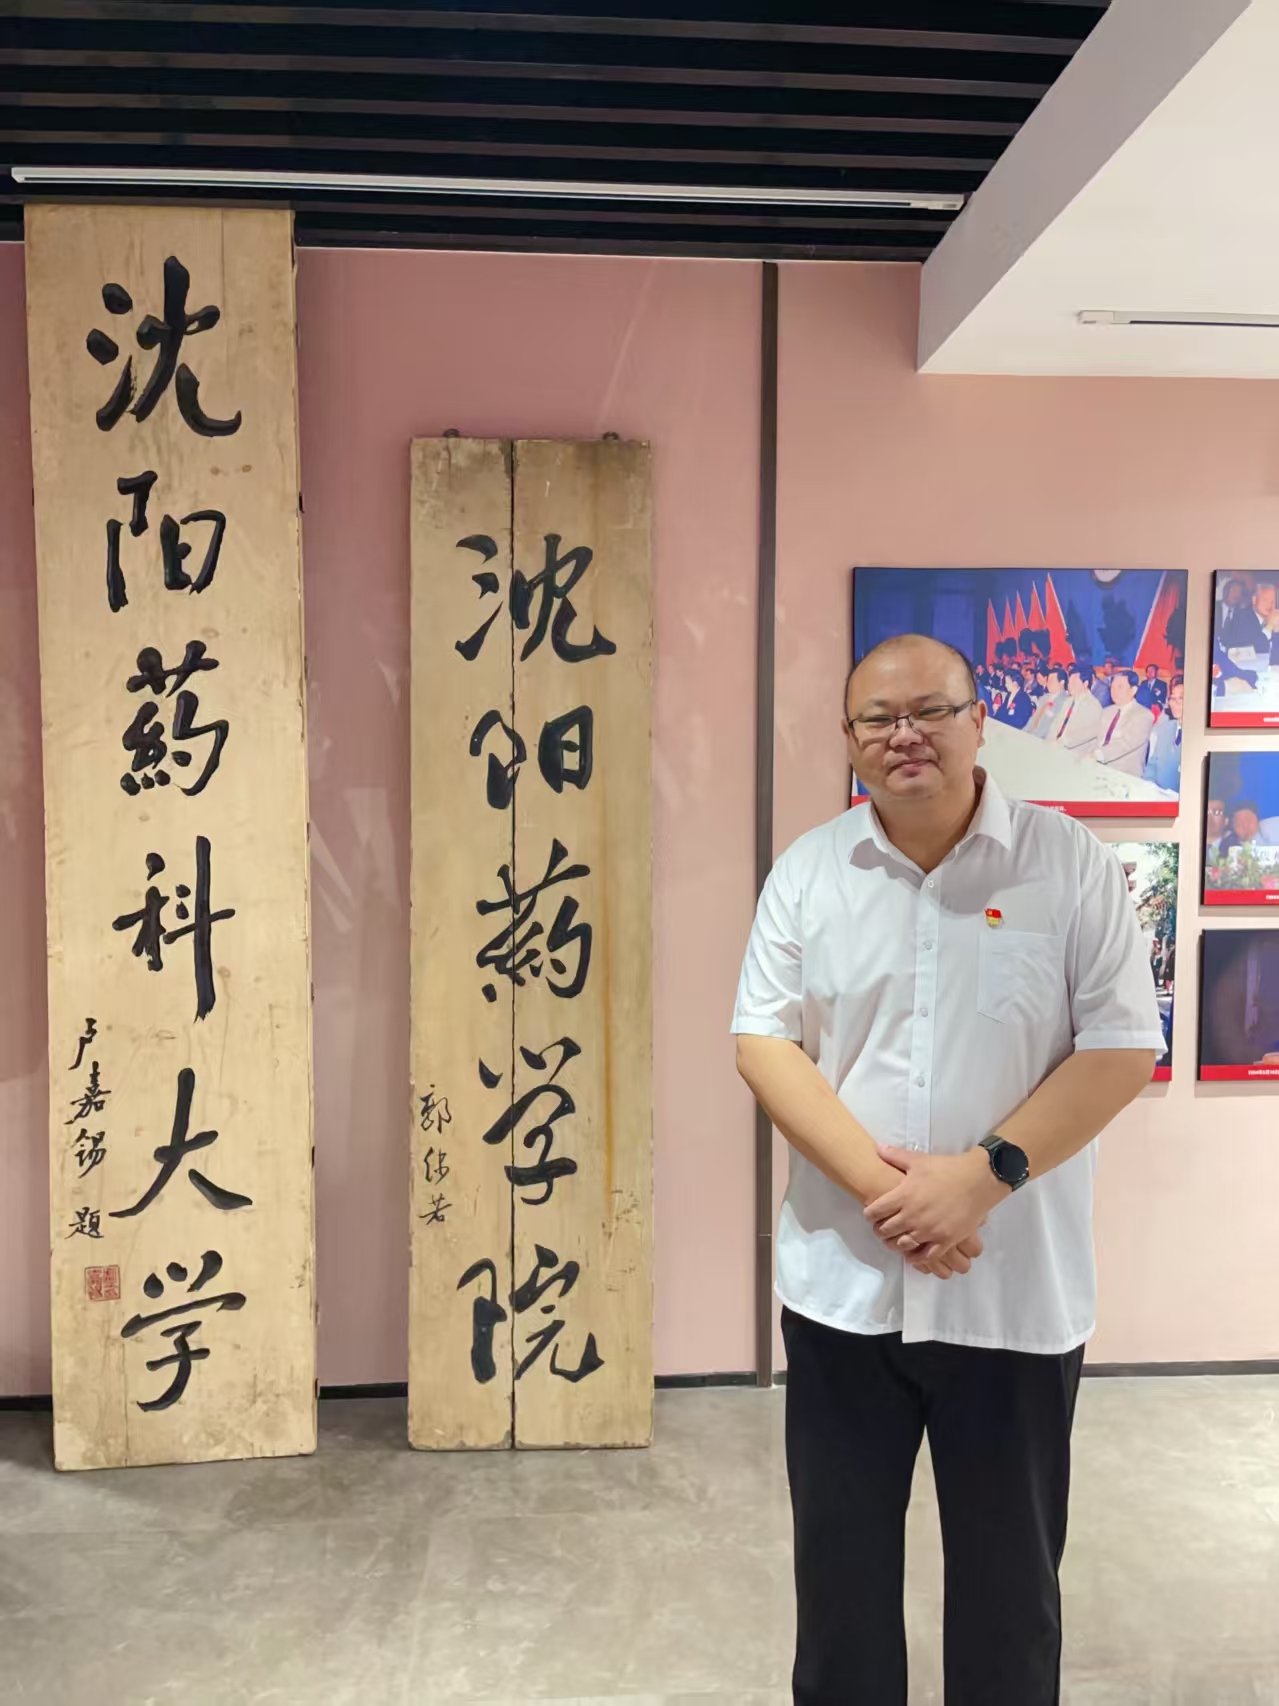 沈阳药科大学
卢嘉锡 题
沈阳药学院
郭沫若